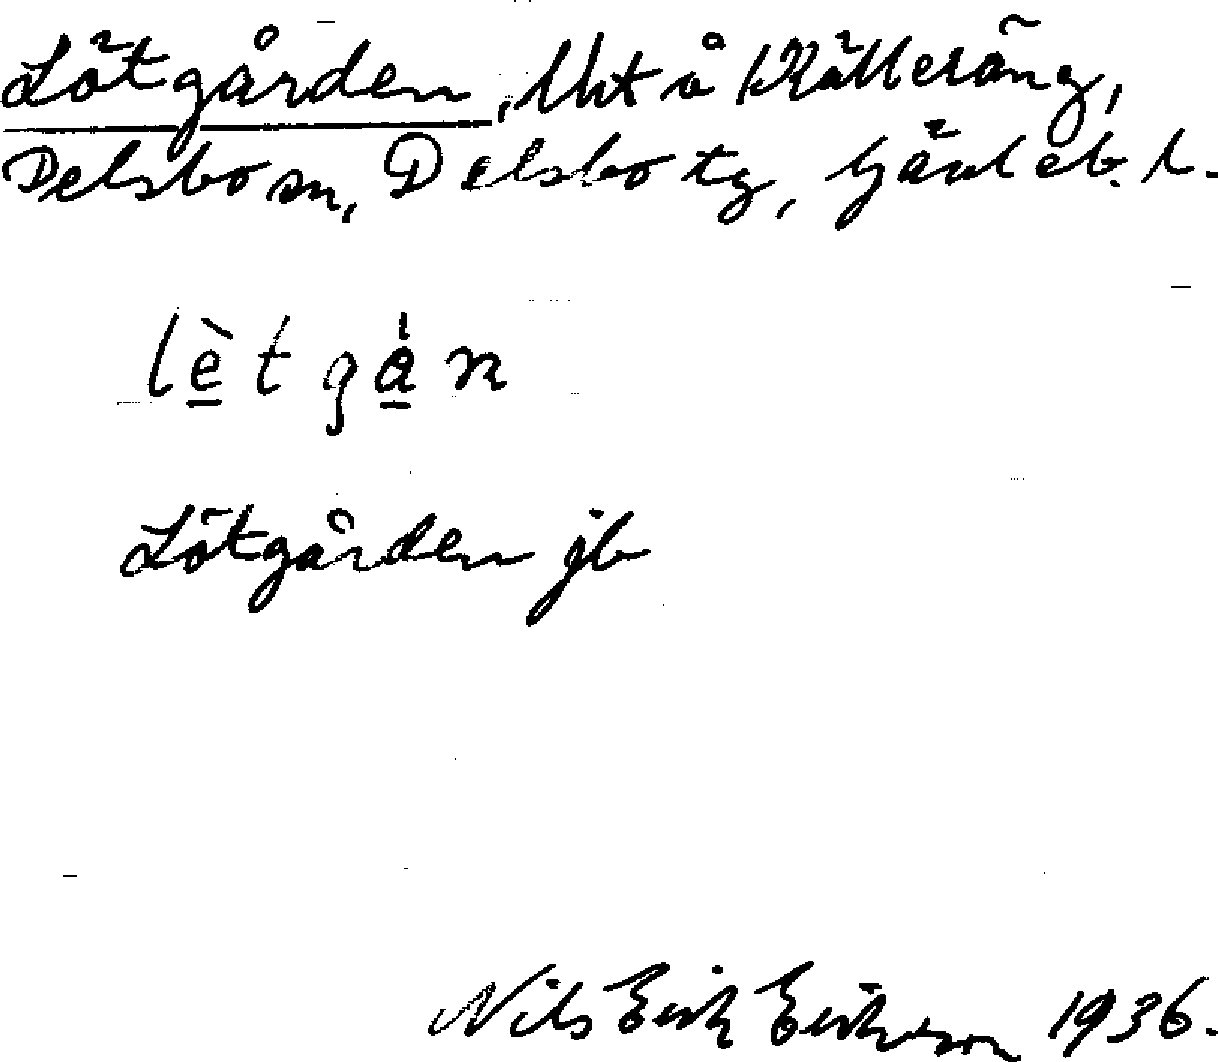 Lötgården, Uht å Källeräng,
Delsbo sn, Delsbo tg, Gävleb. l.
lètgán
Lötgården jb
Nils Erik Erikson 1936.